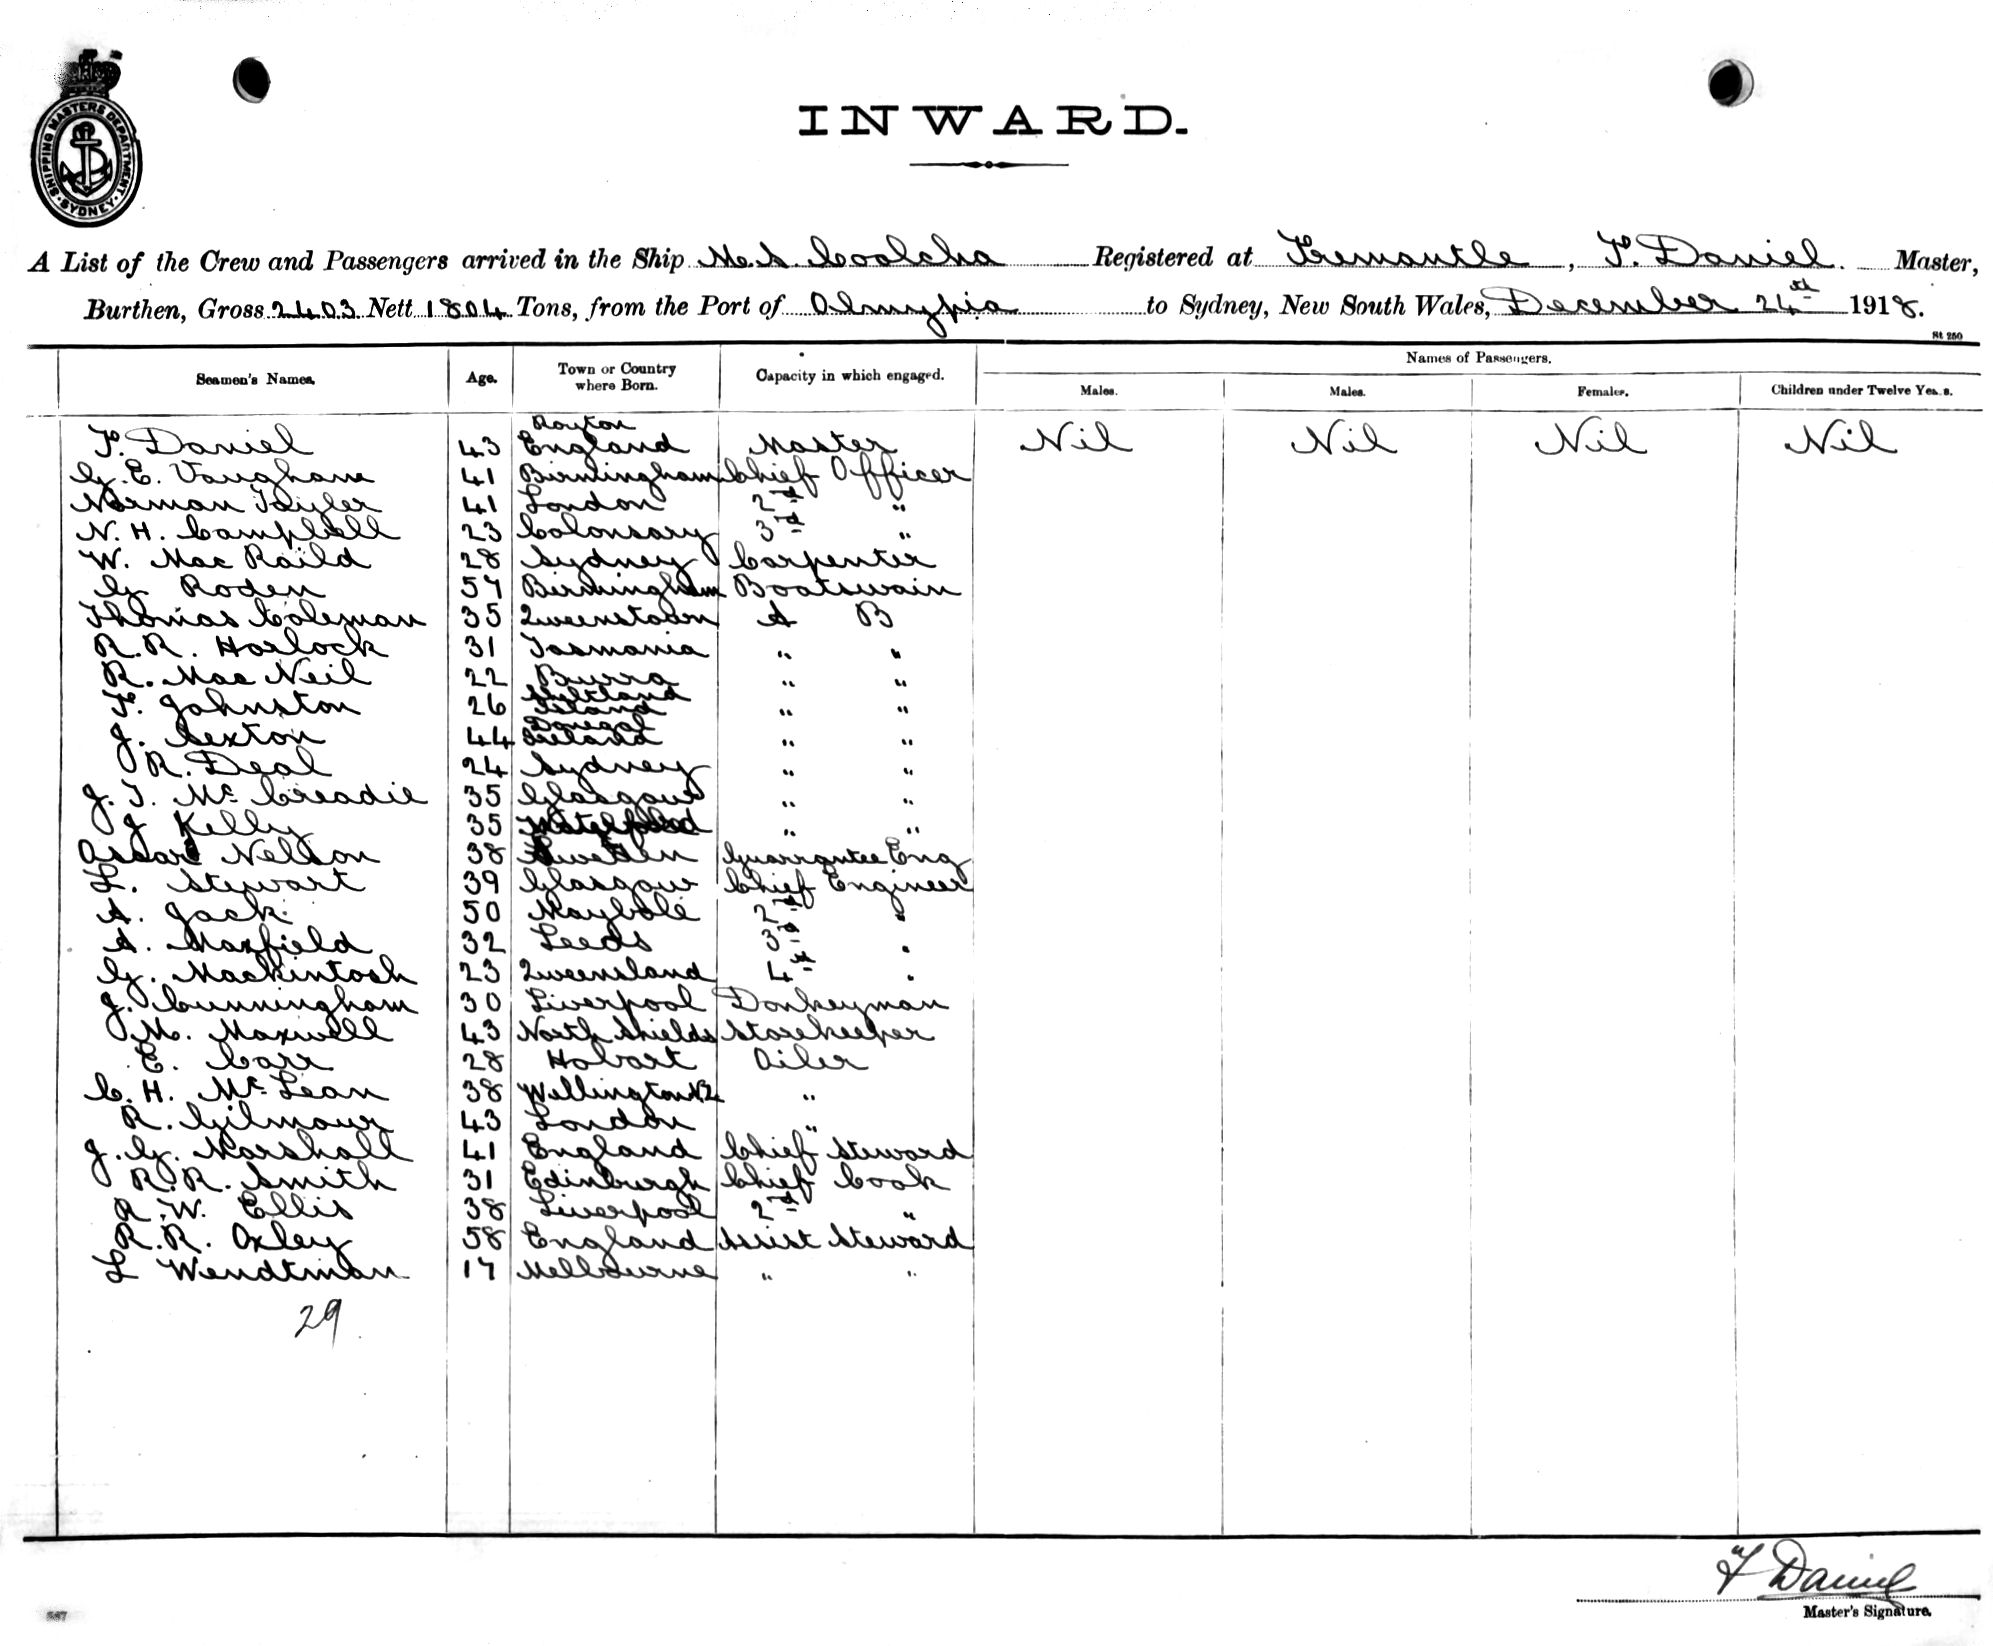 SHIPPING MASTERS DEPARTMENT
SYDNEY
INWARD.
A List of the Crew and Passengers arrived in the Ship M.S. Coolcha Registered at Fremantle, F. Daniel. Master,
Burthen, Gross 2403 Nett 1804 Tons, from the Port of Olmypia to Sydney, New South Wales, December 24th 1918.
St 250
Seamen's Names. Age. Town or Country where Born. Capacity in which engaged. Names of Passengers.
Males. Males. Females. Children under Twelve Years.
F. Daniel 43 Royton England Master Nil Nil Nil Nil
G. E. Vaughan 41 Birmingham Chief Officer
Norman Tayler 41 London 2nd "
N. H. Campbell 23 Colonsary 3rd "
W. Mac Raild 28 Sydney Carpenter
G Roden 57 Birmingham Boatswain
Thomas Coleman 35 Queenstown A B
R. R. Horlock 31 Tasmania " "
R. Mac Neil 22 Burra " "
F. Johnston 26 Shetland Island " "
J. Sexton 44 Donegal Ireland " "
R. Deal 24 Sydney " "
J. T. Mc Creadie 35 Glasgow " "
J Kelly 35 " "
Oscar Nelson 38 Sweden Guarrantee Eng
L. Stewart 39 Glasgow Chief Engineer
A. Jack 50 Maybole 2nd "
A. Maxfield 32 Leeds 3rd "
G. Mackintosh 23 Queensland 4th "
J. Cunningham 30 Liverpool Donkeyman
M. Maxwell 43 North Shields Storekeeper
E. Carr 28 Hobart Oiler
C. H. Mc Lean 38 Wellington NZ "
R. Gilmour 43 London "
J. G. Marshall 41 England Chief Steward
R. R. Smith 31 Edinburgh Chief Cook
R. W. Ellis 38 Liverpool 2nd "
R. R. Oxley 58 England Assist Steward
L Wendtman 17 Melbourne " "
29
F Daniel
Master's Signature.